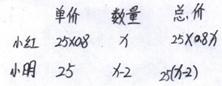 单价 数量 总价
小红 25×0.8 x 25×0.8x
小明 25 x-2 25(x-2)